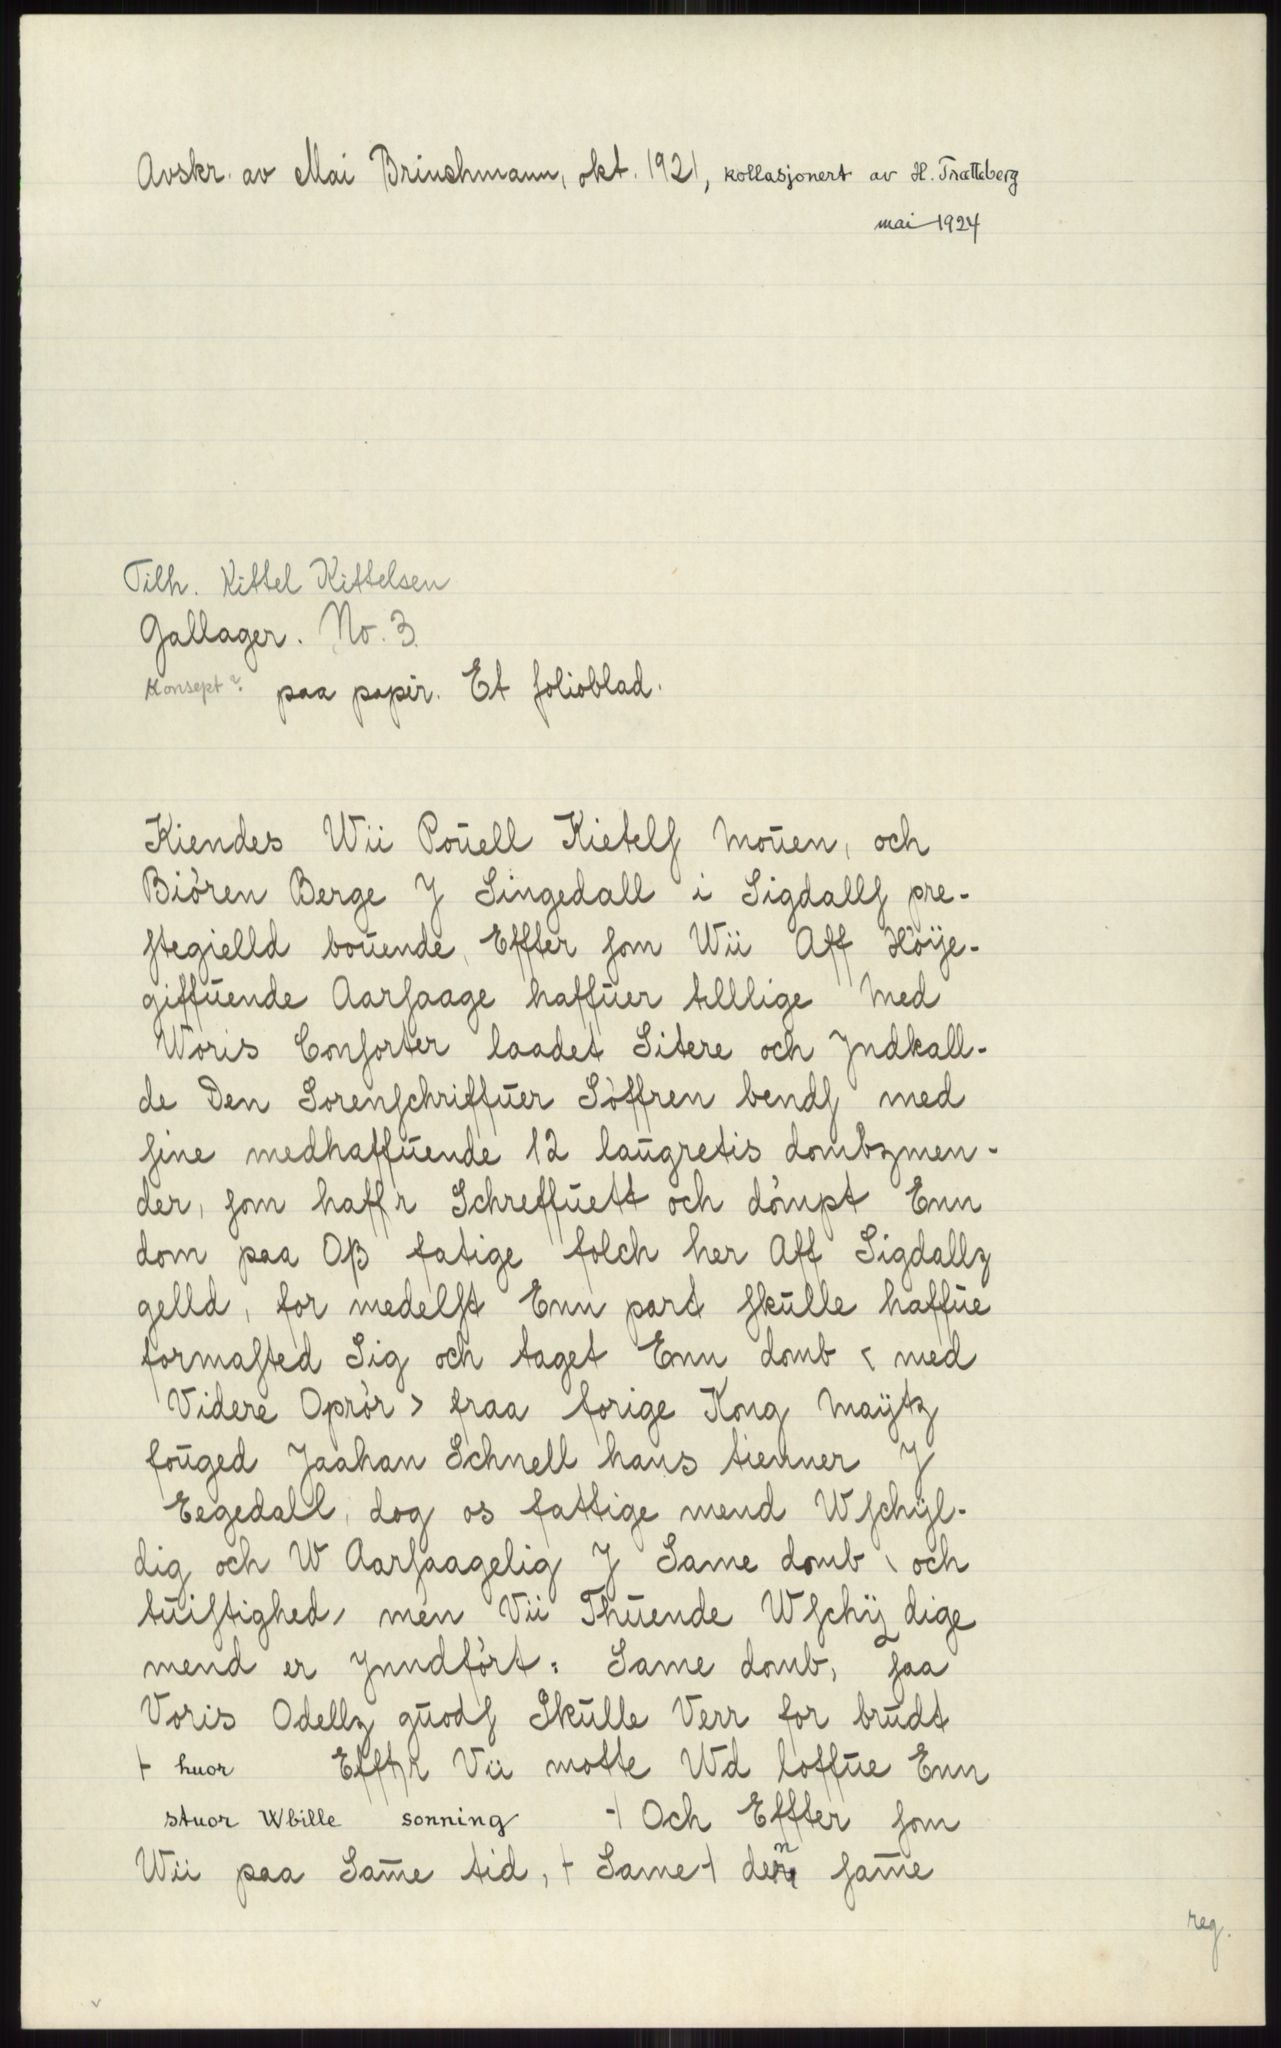 Avskr. av Mai Brinchmann, okt. 1921, kollasjonert av H. Trætteberg
mai 1924
Tilh. Kittel Kittelsen
Gallager. No. 3.
Konsept? paa papir. Et folioblad.
Kiendes Wii Poŭell Kietelſ Moŭen, och
Biören Berge J Singedall i Sigdallſ pre-
ſtegielld boŭende, Effter ſom Wii Aff Höÿe-
giffŭende Aarſaage haffŭer tilllige Med
Woris Conſorter laadet Sitere och Jndkall-
de Den Sorenſchriffŭer Söffren bendſ med
ſine medhaffŭende 12 laŭgretis dombzmen-
der, ſom haff'r Schreffŭett och dömpt Enn
dom paa Oß fatige folch her Aff Sigdallz
gelld, for medelſt Enn part ſkŭlle haffŭe
formaſted Sig och taget Enn domb < med
Videre Oprör > fraa forige Kong Maÿtz
foŭged Jaahan Schnell hans tienner J
Eegedall, dog os fattige mend Wſchÿl-
dig och W Aarſaagelig J Same domb, och
tŭiſtighed, men Vii Thŭende Wſchÿldige
mend er Jnndfört: Same domb, ſaa
Voris Odellz gŭodſ Skŭlle Verr for brŭdt
⊢ huor Efft'r Vii motte Wd loffŭe Enn
stuor Wbille sonning ⊣ Och Effter ſom
Wii paa Sam̄e tid, ⊢ Same ⊣ den ſam̄e
reg.